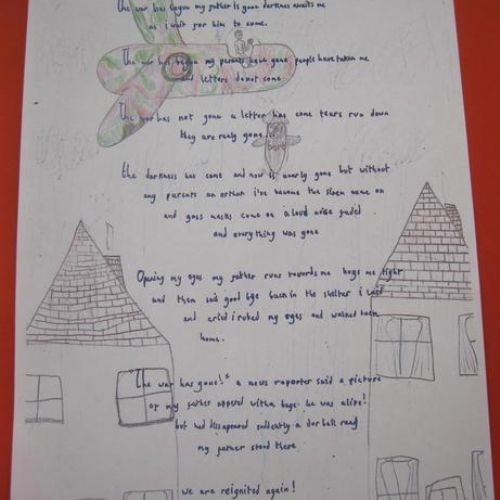 The war has begun my father is gone darkness awaits me
as i wait for him to come.
The war has began my parents have gone people have taken me
and letters do not come
The war has not gone a letter has come tears run down
they are realy gone.
the darkness has come and now is nearly gone but without
any parents an orthan i've became the siren came on
and gass masks come on a loud noise
and everything was gone
Opening my eyes my father runs towards me hugs me tight
and then said good bye back in the shelter i said
and cried i rubed my eyes and walked back
home.
The war has gone!" a news reporter said a picture
of my father appered with a huge he was alive!
but had dissapeared suddently a dor bell
my father stood there
we are reignited again!